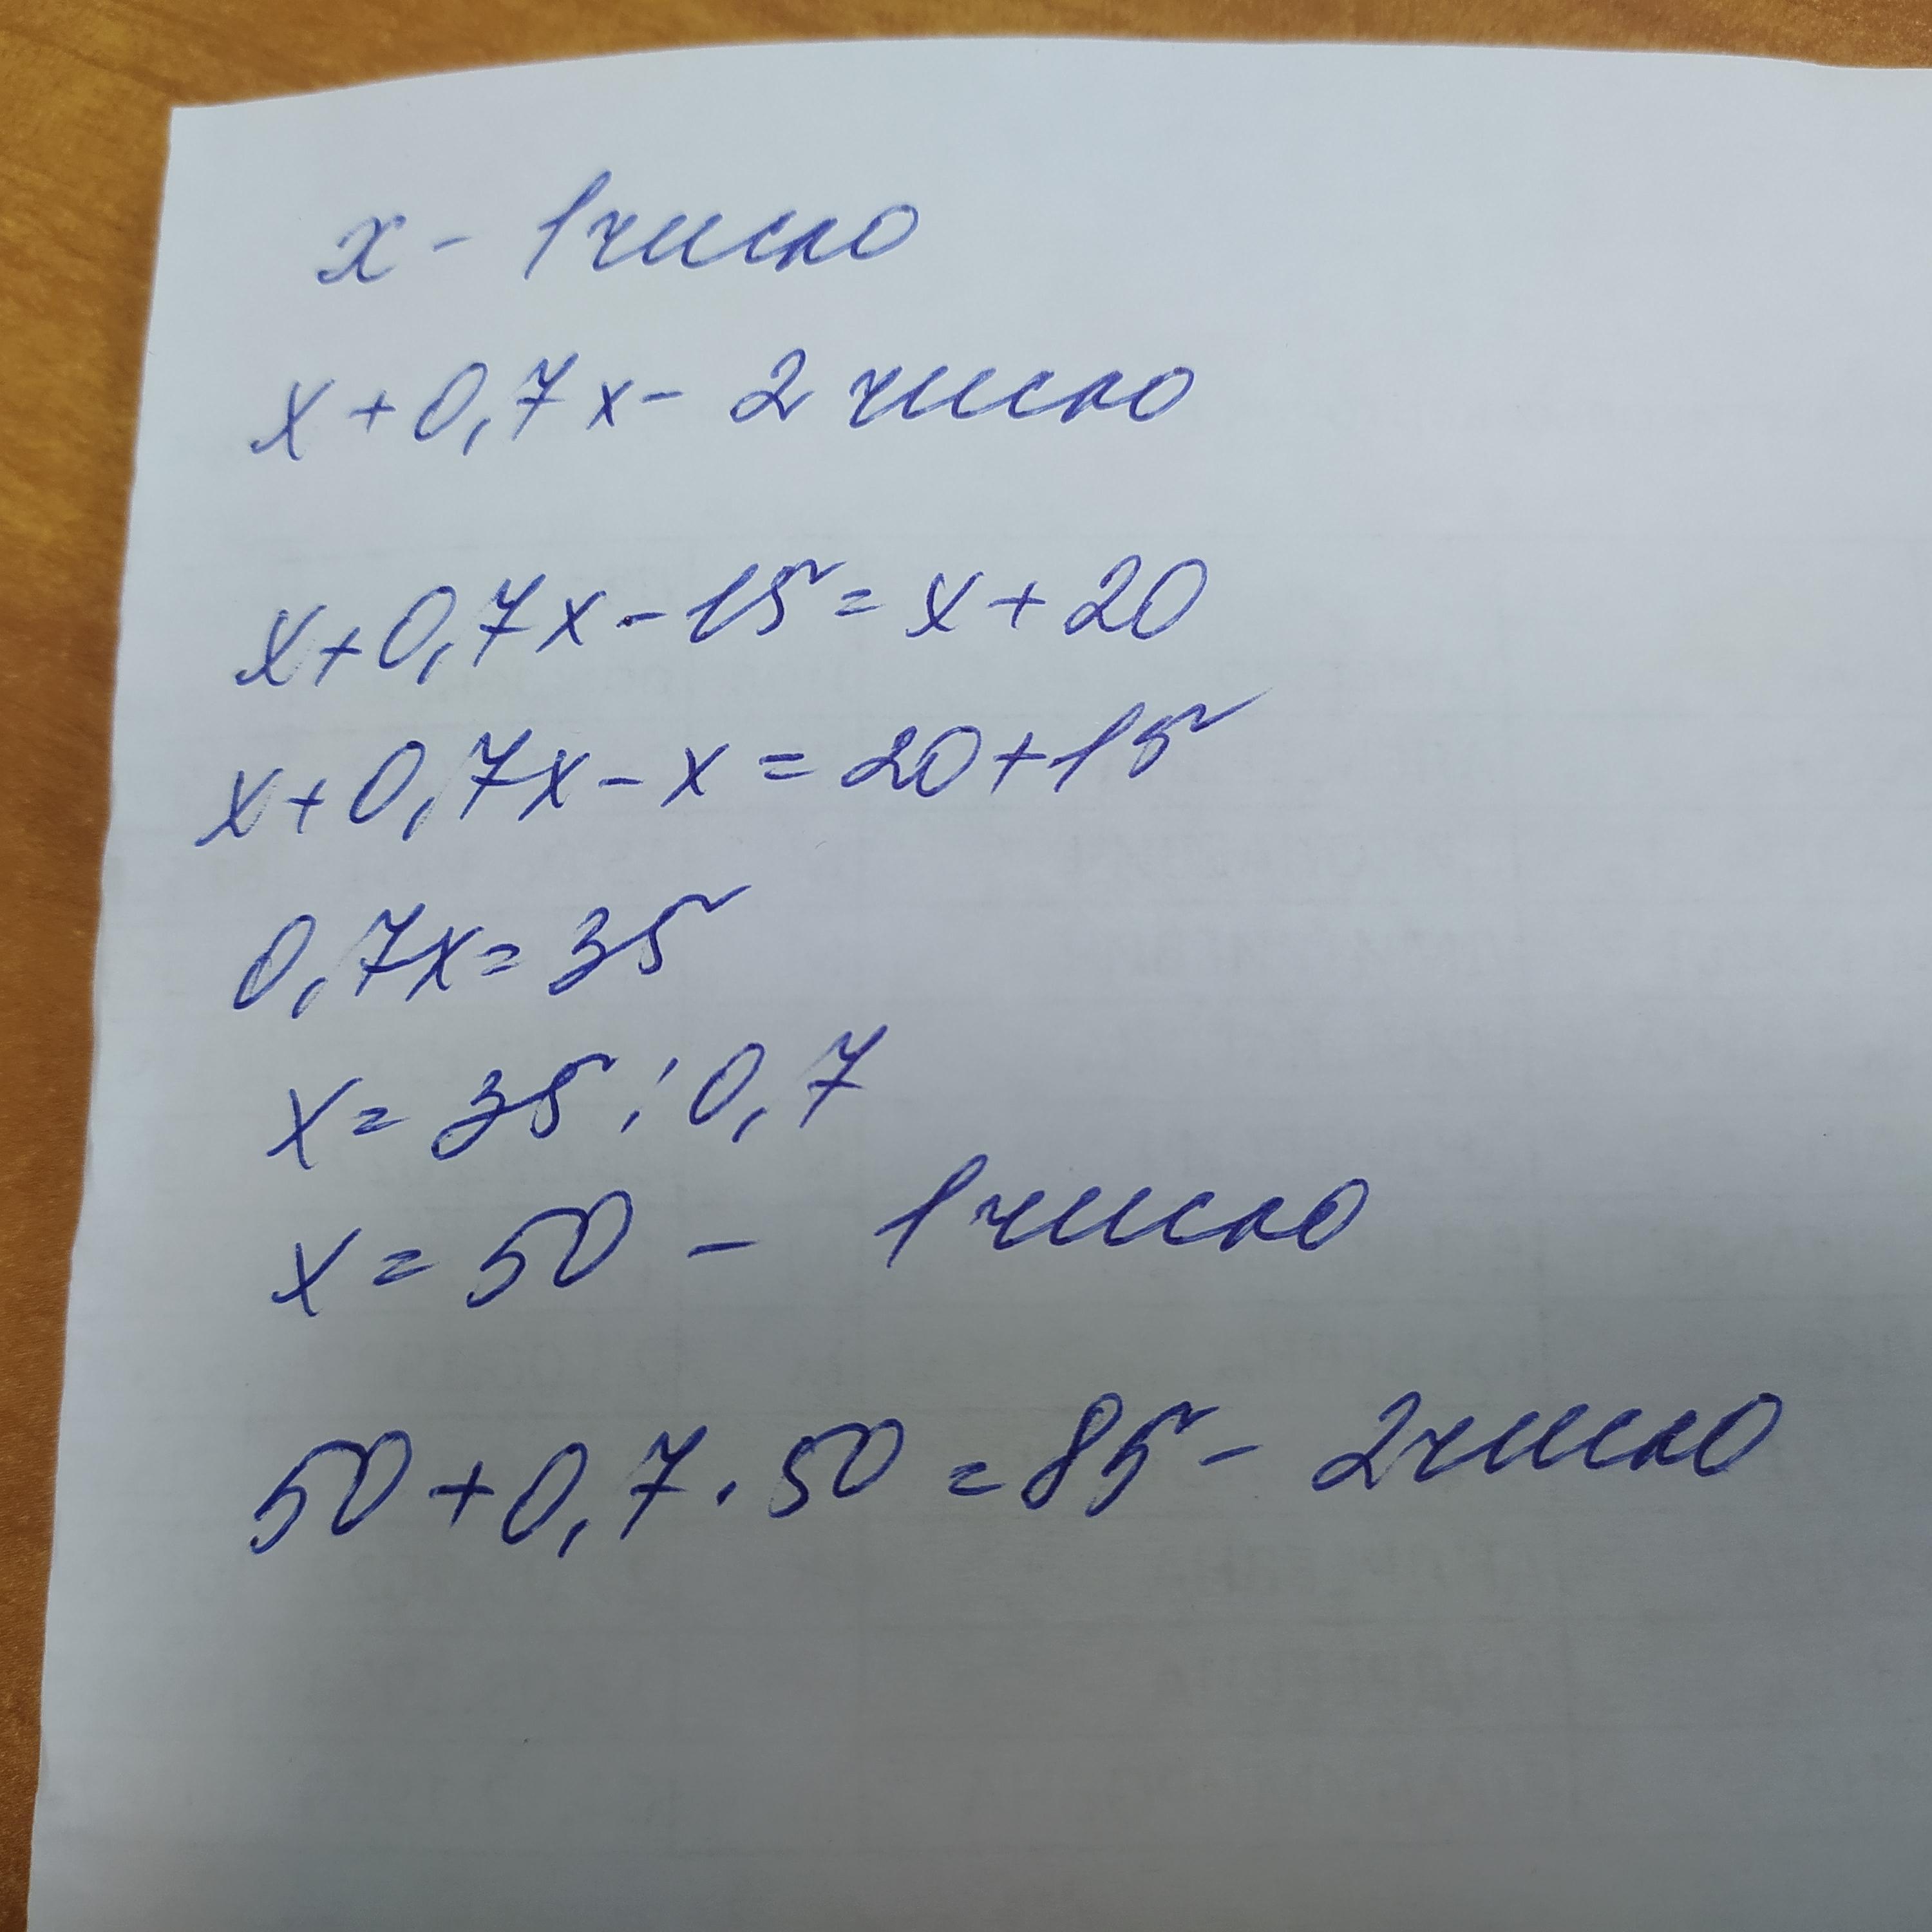 x - 1 число
x + 0,7x - 2 число
x + 0,7x - 15 = x + 20
x + 0,7x - x = 20 + 15
0,7x = 35
x = 35 : 0,7
x = 50 - 1 число
50 + 0,7 · 50 = 85 - 2 число